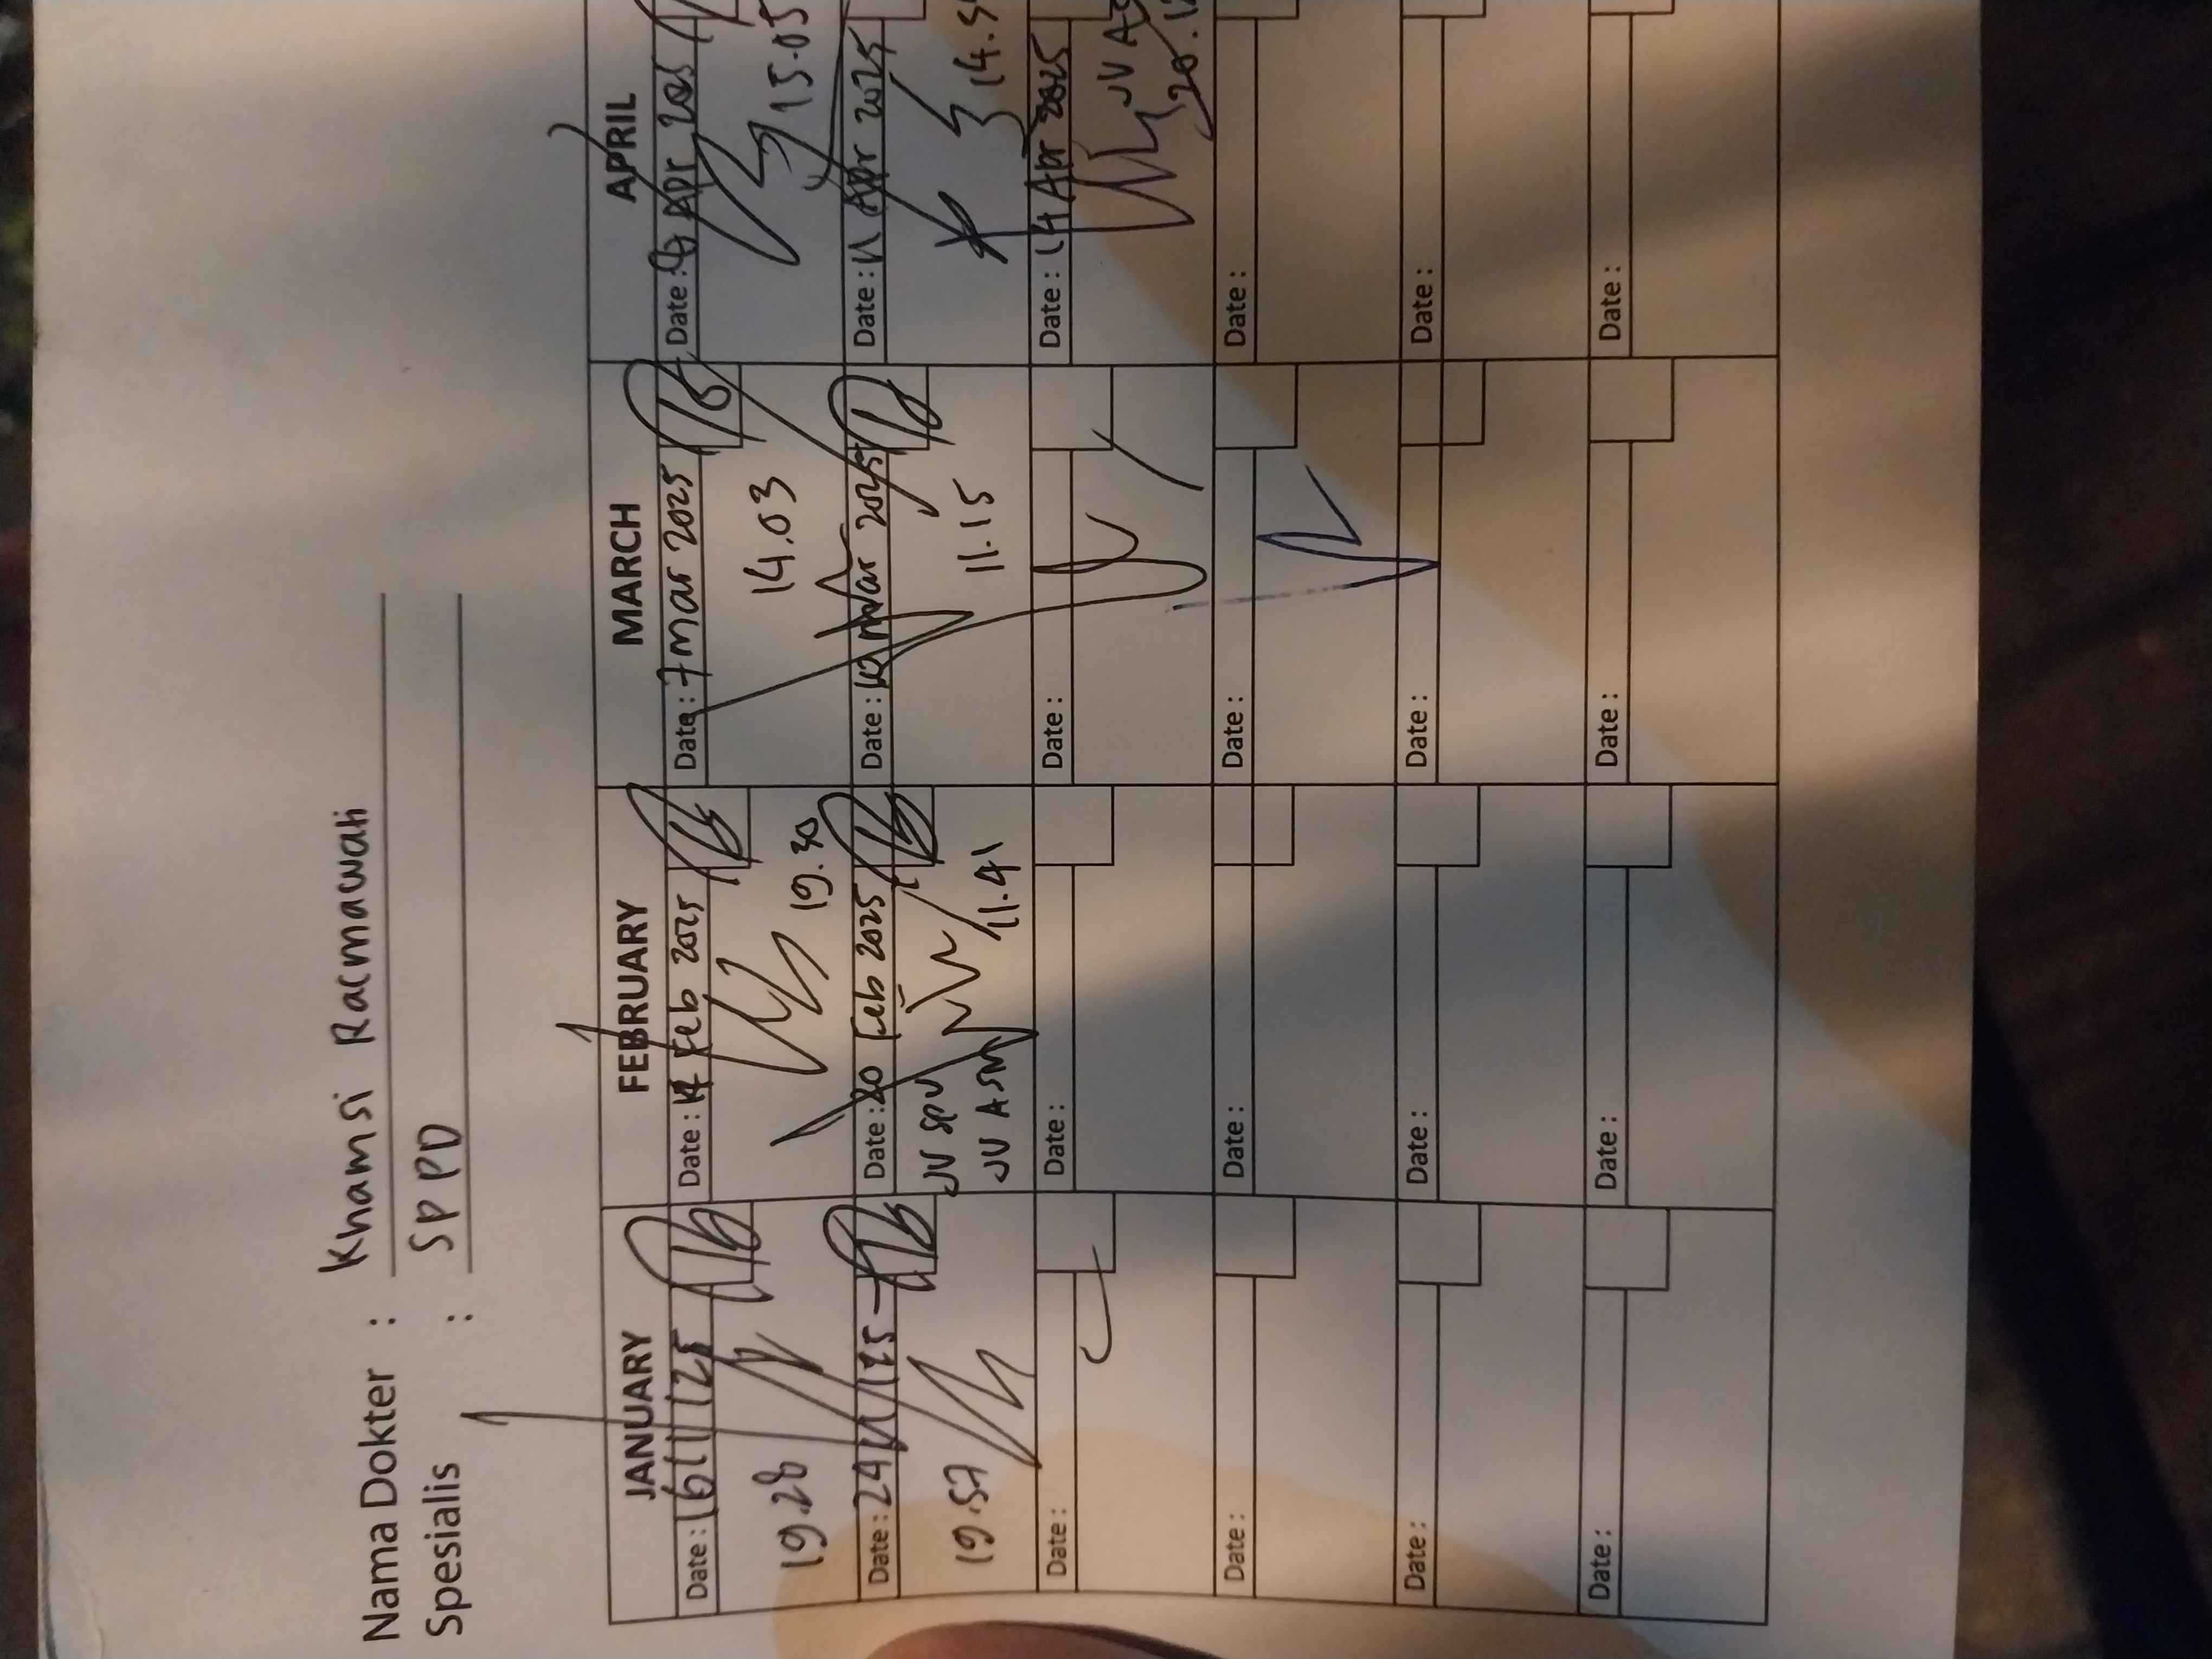 Nama Dokter : Khamsi Racmawati
Spesialis : SP PD
JANUARY FEBRUARY MARCH APRIL
Date : 16/1/25 Date : Feb 2025 Date : 7 mar 2025 Date : Apr 2025
19.20 19.30 14.03 15.05
Date : 24/1/25 Date : 20 Feb 2025 Date : mar 2025 Date : 11 Apr 2025
JV SPV
19.57 JV ASM 11.41 11.15 14.5
Date : Date : Date : Date : 14 Apr 2025
JV AS
20.1
Date : Date : Date : Date :
Date : Date : Date : Date :
Date : Date : Date : Date :